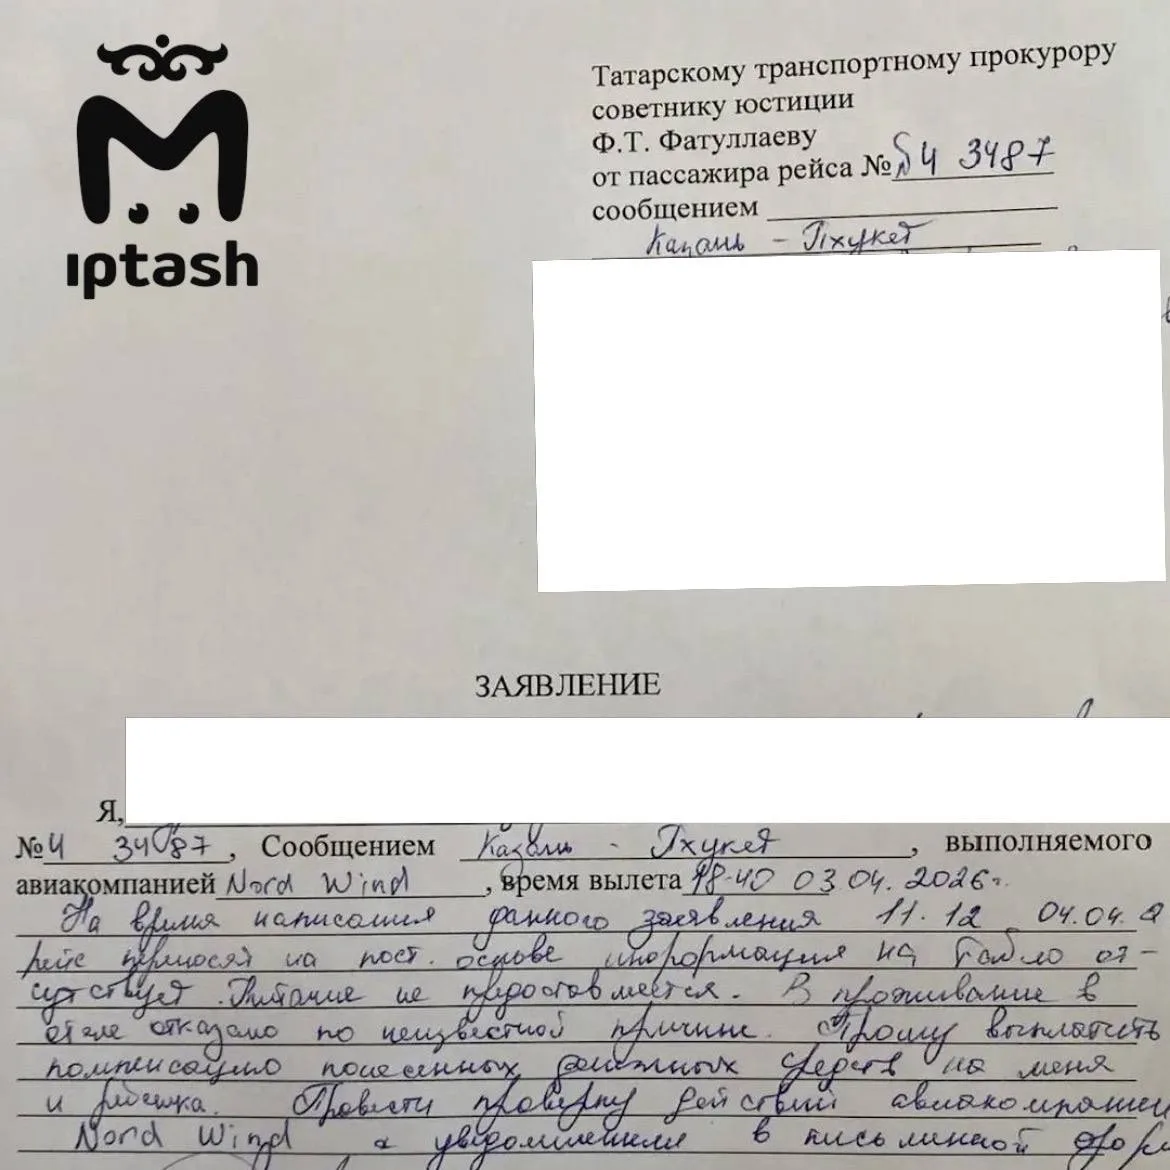 ıptash
Татарскому транспортному прокурору
советнику юстиции
Ф.Т. Фатуллаеву
от пассажира рейса № N4 3487
сообщением
Казань - Пхукет
ЗАЯВЛЕНИЕ
Я,
№4 3487, Сообщением Казань - Пхукет, выполняемого
авиакомпанией Nord Wind, время вылета 18-40 03.04.2026г.
На время написания данного заявления 11.12 04.04.
рейс переносят на пост. основе информация на табло от-
сутствует. Питание не предоставляется. В проживание в
отеле отказано по неизвестной причине. Прошу выплатить
компенсацию понесенных денежных средств на меня
и ребенка. Провести проверку действий авиакомпании
Nord Wind с уведомлением в письменной